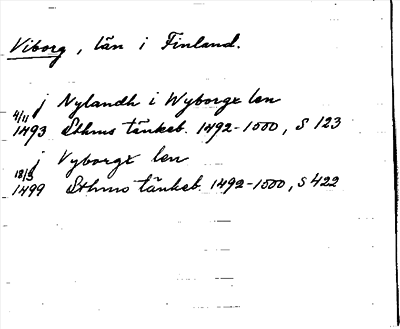 Viborg, län i Finland.
j Nylandh i Wyborgx len
4/11 1493 Sthms tänkeb. 1492-1500, S 123
j Vyborgx len
18/3 1499 Sthms tänkeb. 1492-1500, S 422